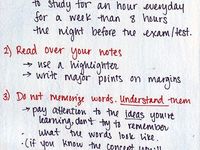 to study for an hour everyday
for a week than 8 hours
the night before the exam/test.
2) Read over your notes
→ use a highlighter
→ write major points on margins
3) Do not memorize words. Understand them
→ pay attention to the ideas you're
learning, don't try to remember
what the words look like.
(if you know the concept you'll